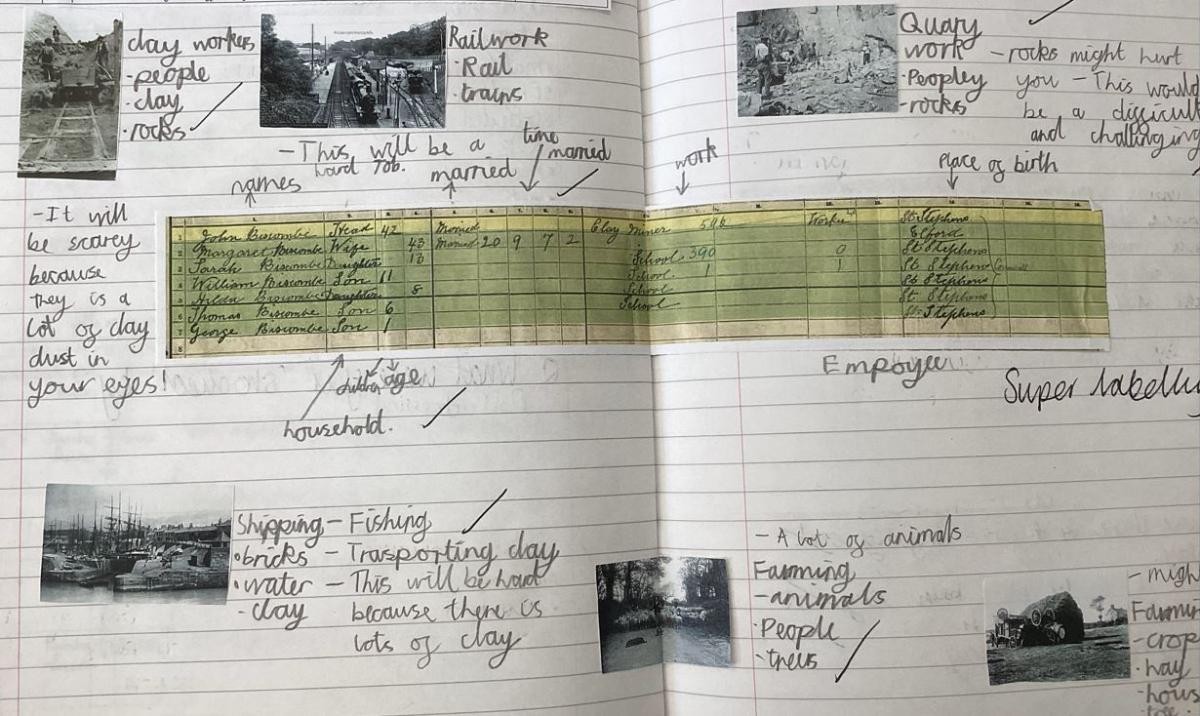 clay workers
-people
·clay
·rocks
Railwork
·Rail
·trains
-This will be a
hard Job.
Quary
work
·Peopley
-rocks
-rocks might hurt
you -This would
be a difficult
and challenging
names
married
time
married
work
place of birth
-It will
be scarey
because
they is a
lot of clay
dust in
your eyes!
1 John Biscombe Head 42 Married Clay Miner 596 Worker St Stephens
2 Margaret Biscombe Wife 43 Married 20 9 7 2
3 Sarah Biscombe Daughter 13 School 390 0 St Stephens
4 William Biscombe Son 11 School 1 1 St Stephens
5 Hilda Biscombe Daughter 8 School St Stephens
6 Thomas Biscombe Son 6 St Stephens
7 George Biscombe Son 1 St Stephens
8
children
age
household.
Empoyeu
Super labelli
Shipping - Fishing
·bricks - Trasporting clay
·water - This will be hard
·clay because there is
lots of clay
- A lot of animals
Farming
-animals
·People
·trees
- migh
Farmin
-crop
·hay
·hous